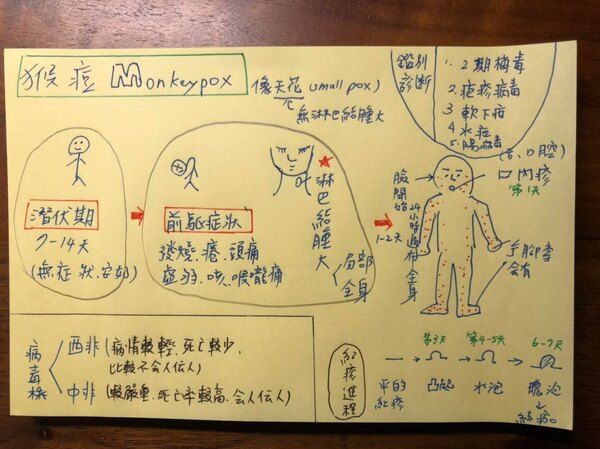 猴痘 Monkeypox
像天花(small pox)
無淋巴結腫大
鑑別
診斷
1. 2期梅毒
2. 疱疹病毒
3. 軟下疳
4. 水痘
5. 腸病毒
潛伏期
7-14天
(無症狀.安好)
前驅症狀
發燒.倦.頭痛
虛弱.咳.喉嚨痛
淋巴結腫大
局部
全身
1-2天
臉開始
24小時遍布全身
(舌、口腔)
口內疹
第1天
手腳掌
會有
病毒株
西非(病情較輕.死亡較少.
比較不會人伝人)
中非(較嚴重.死亡率較高.会人伝人)
紅疹進程
平的
紅疹
第3天
凸起
第4-5天
水泡
6-7天
膿泡
結痂